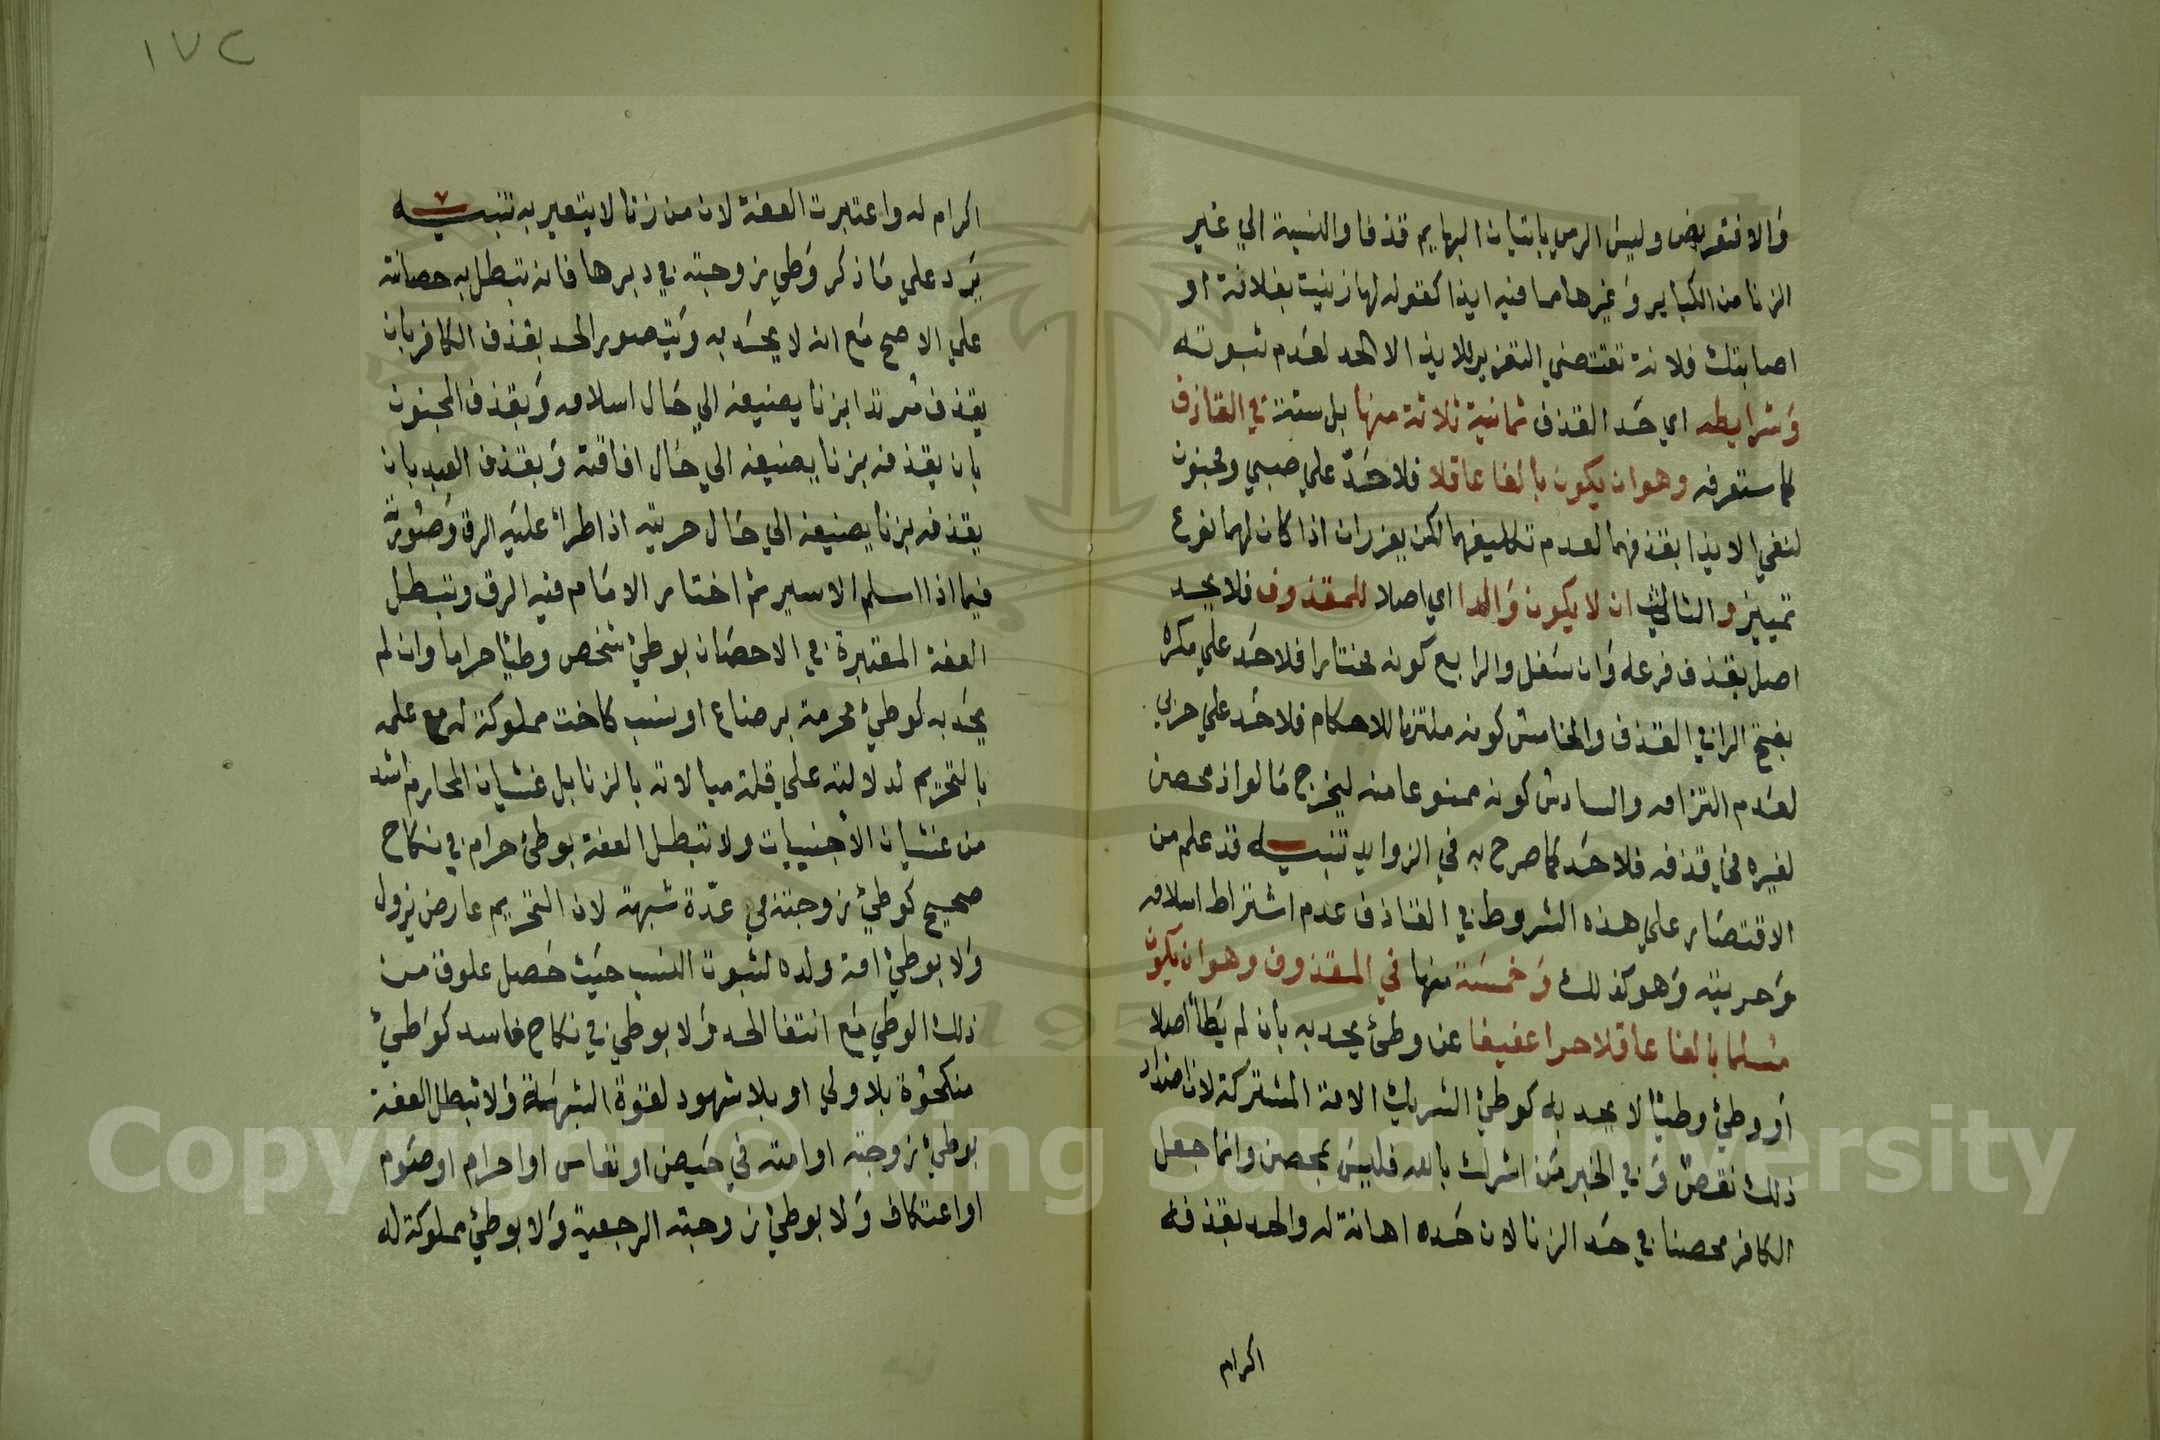 ١٧٢
والا فتعريض وليس الرمي باتيان البهايم قذفا والنسبة الي غير
الزنا من الكباير وغيرها مما فيه ايذا كقوله لها زنيت بفلانة او
اصابتك فلانة تقتضي التعزير للايذا لا الحد لعدم ثبوته
وشرايطه اي حد القذف ثمانية ثلاثة منها بل ستة في القاذف
كما ستعرفه وهو ان يكون بالغا عاقلا فلا حد علي صبي ومجنون
لنفي الايذا بقذفهما لعدم تكليفهما لكن يعزران اذا كان لهما نوع
تمييز والثالث ان لا يكون والدا اي اصلا للمقذوف فلا يحد
اصل بقذف فرعه وان سفل والرابع كونه مختارا فلا حد علي مكره
بفتح الرا في القذف والخامس كونه ملتزما للاحكام فلا حد علي حربي
لعدم التزامه والسادس كونه ممنوعا منه ليخرج ما لو اذ محصن
لغيره في قذفه فلا حد كما صرح به في الزوايد تنبيه قد علم من
الاقتصار علي هذه الشروط في القاذف عدم اشتراط اسلامه
وحريته وهو كذلك وخمسة منها في المقذوف وهو ان يكون
مسلما بالغا عاقلا حرا عفيفا عن وطئ يحد به بان لم يطأ اصلا
او وطئ وطيا لا يحد به كوطئ الشريك الامة المشتركة لان اضداد
ذلك نقص وفي الخبر من اشرك بالله فليس بمحصن وانما جعل
الكافر محصنا في حد الزنا لان حده اهانة له والحد بقذفه
اكرام
اكرام له واعتبرت العفة لان من زنا لا يتعير به تنبيه
يرد علي ما ذكر وطي زوجته في دبرها فانه تبطل به حصانته
علي الاصح مع انه لا يحد به ويتصور الحد بقذف الكافر بان
يقذف مرتدا بزنا يضيفه الي حال اسلامه وبقذف المجنون
بان يقذفه بزنا يضيفه الي حال افاقته وبقذف العبد بان
يقذفه بزنا يضيفه الي حال حريته اذا طرأ عليه الرق وصورته
فيما اذا اسلم الاسير ثم اختار الامام فيه الرق وتبطل
العفة المعتبرة في الاحصان بوطئ شخص وطيا حراما وان لم
يحد به كوطئ محرمة برضاع او نسب كاخت مملوكة له مع علمه
بالتحريم لدلالته علي قلة مبالاته بالزنا بل غشيان المحارم اشد
من غشيان الاجنبيات ولا تبطل العفة بوطئ حرام في نكاح
صحيح كوطئ زوجته في عدة شبهة لان التحريم عارض يزول
ولا بوطئ امة ولده لثبوت النسب حيث حصل علوق من
ذلك الوطي مع انتفا الحد ولا بوطئ في نكاح فاسد كوطئ
منكحوة بلا ولي او بلا شهود لقوة الشبهة ولا تبطل العفة
بوطئ زوجته او امته في حيض او نفاس او احرام او صوم
او اعتكاف ولا بوطئ زوجته الرجعية ولا بوطئ مملوكة له
Copyright © King Saud University
195